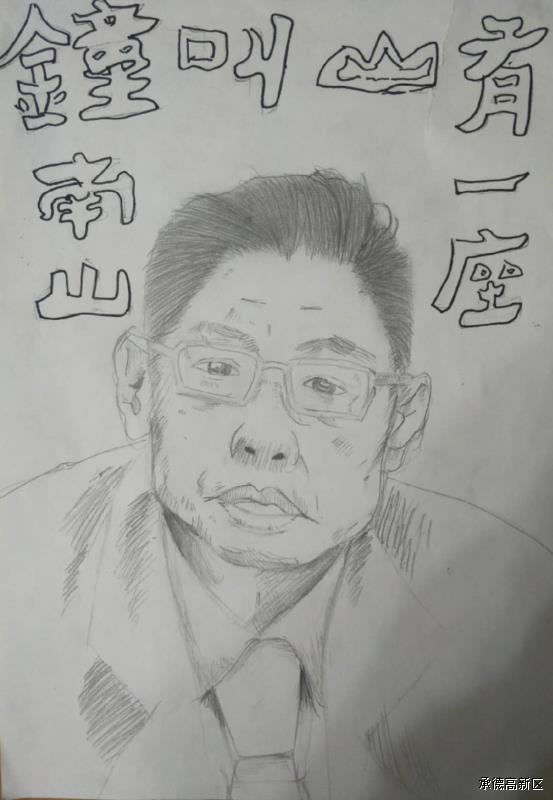 有一座
山
叫
鐘南山
承德高新区